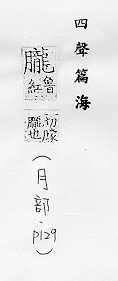 四聲篇海
朧
魯紅
朦朧也
（月部．p129）